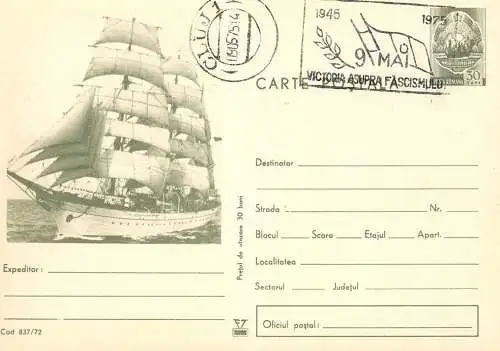 CLUJ 1
09.05.75-14
1945 1975
9 MAI
VICTORIA ASUPRA FASCISMULUI
50
CARTE POȘTALĂ
Destinatar
Strada Nr.
Blocul Scara Etajul Apart.
Localitatea
Sectorul Județul
Oficiul poștal:
Expeditor:
Prețul de vînzare 30 bani
Cod 837/72